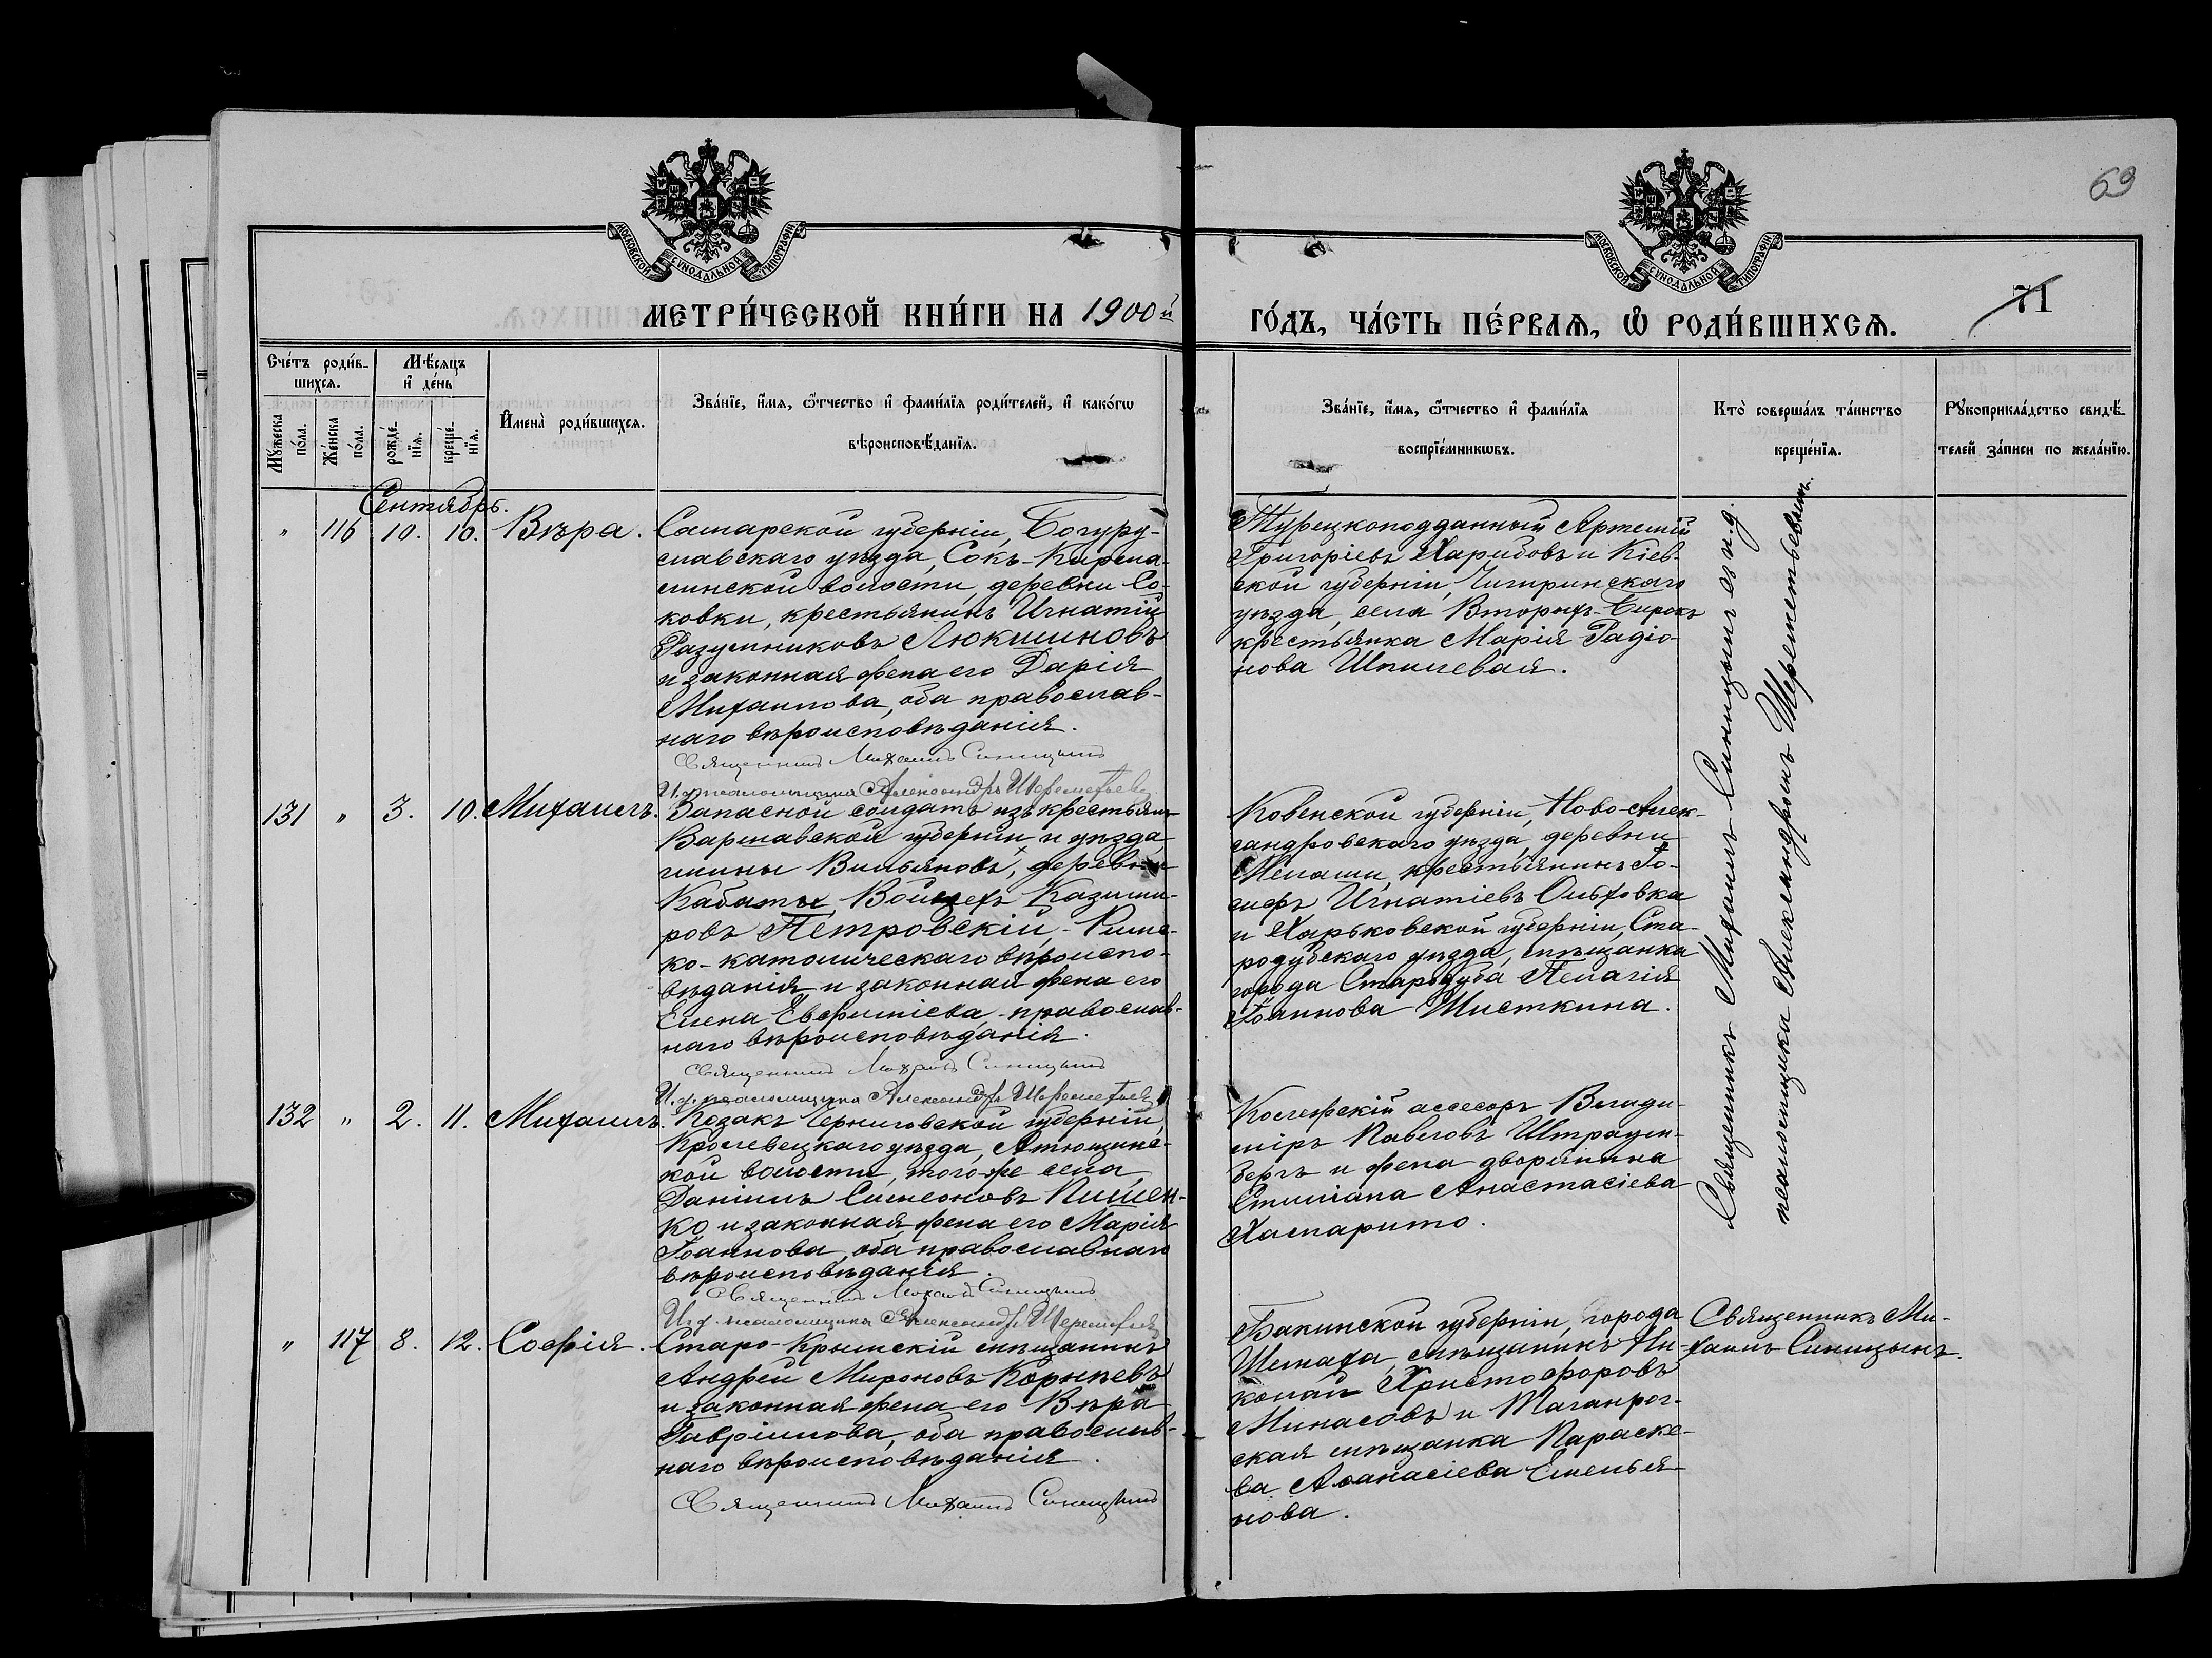 69
МОСКОВСКОЙ СУНОДАЛЬНОЙ ТИПОГРАФІИ
МОСКОВСКОЙ СУНОДАЛЬНОЙ ТИПОГРАФІИ
МЕТРИ́ЧЕСКОЙ КНИ́ГИ НА 1900й
ГО́ДЪ, ЧА́СТЬ ПЕ́РВАѦ, Ѡ РОДИ́ВШИХСѦ.
71
Сче́тъ роди́в-
шихсѧ.
Мѣ́сяцъ
и де́нь
Мꙋ́жеска
по́ла.
Же́нска
по́ла.
рожде́-
нїѧ.
креще́-
нїѧ.
Имена̀ роди́вшихсѧ.
Зва́нїе, и́мѧ, ѻ́тчество и фами́лїѧ роди́телей, и како́гѡ
вѣроисповѣ́данїѧ.
Зва́нїе, и́мѧ, ѻ́тчество и фами́лїѧ
воспрїе́мникѡвъ.
Кто̀ соверша́лъ та́инство
креще́нїѧ.
Рꙋкоприкла́дство свидѣ́-
телей за́писи по жела́нїю.
Сентябрь.
" 116 10. 10. Вѣра.
Самарской губерніи, Богуру-
славскаго уѣзда, Сокъ-Кармa-
линской волости, деревни Со-
ковки, крестьянинъ Игнатій
Разумниковъ Люкшиновъ
и законная жена его Дарія
Михаилова, оба православ-
наго вѣроисповѣданія.
Священникъ Михаилъ Синицынъ
И. д. псаломщика Александръ Шереметьевъ
Турецкоподданный Артемій
Григоріевъ Харибовъ и Кіев-
ской губерніи, Чигиринскаго
уѣзда, села Вторыхъ-
крестьянка Марія Радіо-
нова Шпилевая.
Священникъ Михаилъ Синицынъ съ и.д.
псаломщика Александромъ Шереметьевымъ.
131 " 3. 10. Михаилъ.
Запасной солдатъ изъ крестьянъ
Варшавской губерніи и уѣзда,
гмины Вильяновъ, деревни
Кабаты, Войцехъ Казими-
ровъ Петровскій, - Римс-
ко-католическаго вѣроиспо-
вѣданія и законная жена его
Елена Евфиміева - православ-
наго вѣроисповѣданія.
Священникъ Михаилъ Синицынъ
И. д. псаломщика Александръ Шереметьевъ
Ковенской губерніи, Ново-Алек-
сандровскаго уѣзда, деревни
крестьянинъ Іо-
сифъ Игнатіевъ Ольховка
и Харьковской губерніи, Ста-
родубскаго уѣзда, мѣщанка
города Стародуба Пелагія
Іоаннова Шисткина.
132 " 2. 11. Михаилъ.
Козакъ Черниговской губерніи,
Кролевецкаго уѣзда, Атюшинс-
кой волости, того же села,
Даніилъ Симеоновъ Пишен-
ко и законная жена его Марія
Іоаннова, оба православнаго
вѣроисповѣданія.
Священникъ Михаилъ Синицынъ
И. д. псаломщика Александръ Шереметьевъ
Коллежскій ассесоръ Влади-
міръ Павловъ Штраухен-
бергъ и жена дворянина
Анастасіева
" 117 8. 12. Софія.
Старо-Крымскій мѣщанинъ
Андрей Мироновъ Корнѣевъ
и законная жена его Вѣра
Гавріилова, оба православ-
наго вѣроисповѣданія.
Священникъ Михаилъ Синицынъ
Бакинской губерніи, города
Шемаха, мѣщанинъ Ни-
колай Христофоровъ
Минасовъ и Таганрог-
ская мѣщанка Параске-
ва Аѳанасіева Емелья-
нова.
Священникъ Ми-
хаилъ Синицынъ.